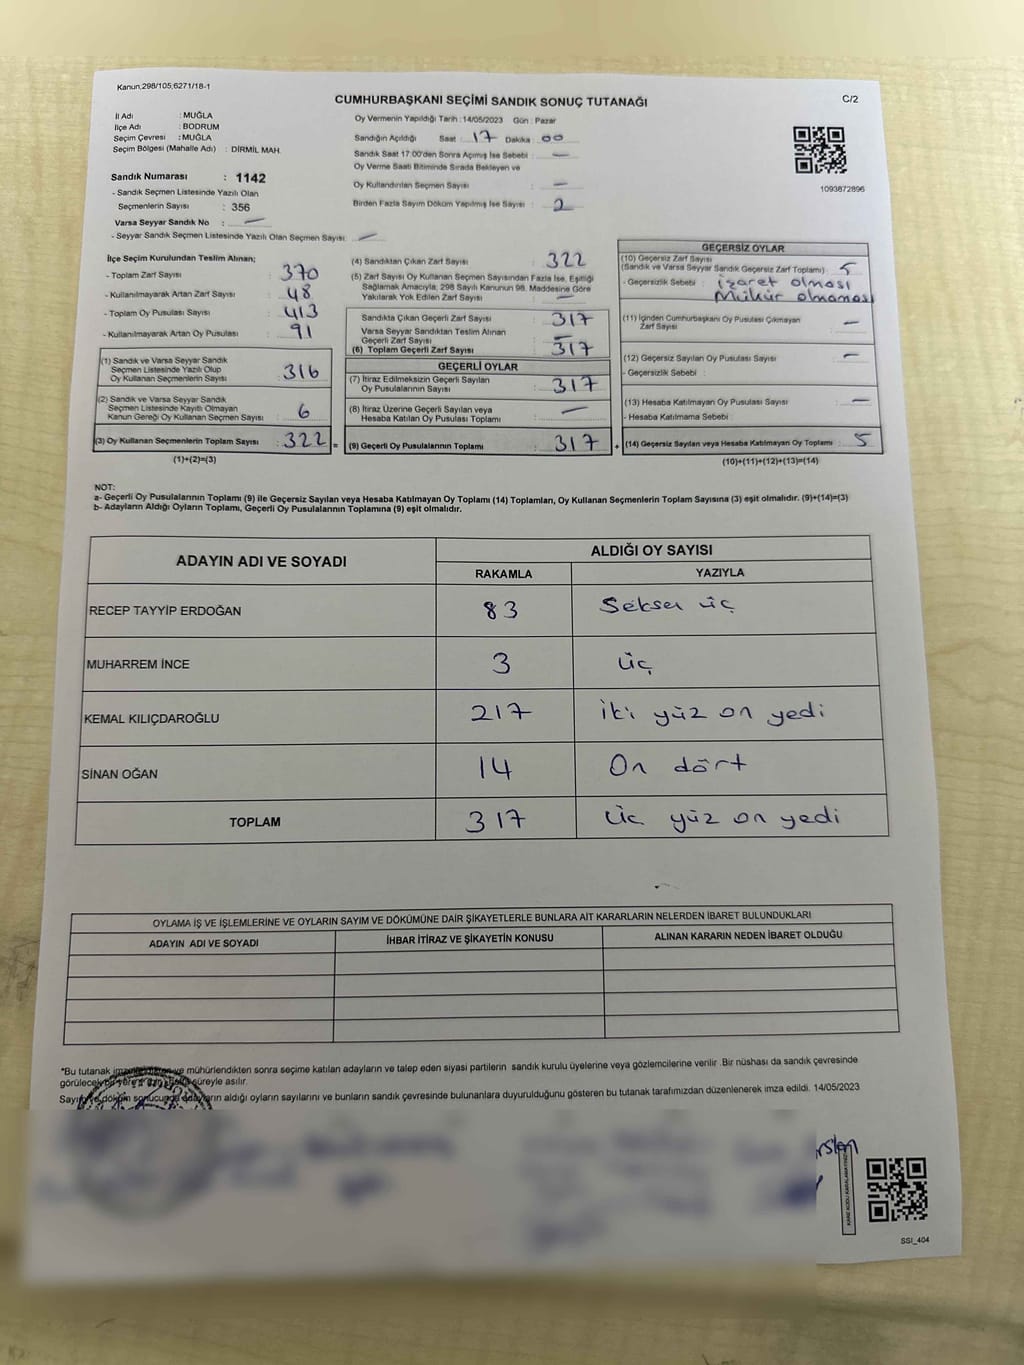 Kanun;298/105;6271/18-1
CUMHURBAŞKANI SEÇİMİ SANDIK SONUÇ TUTANAĞI
C/2
İl Adı : MUĞLA
İlçe Adı : BODRUM
Seçim Çevresi : MUĞLA
Seçim Bölgesi (Mahalle Adı) : DİRMİL MAH.
Sandık Numarası : 1142
- Sandık Seçmen Listesinde Yazılı Olan
Seçmenlerin Sayısı : 356
Varsa Seyyar Sandık No : —
- Seyyar Sandık Seçmen Listesinde Yazılı Olan Seçmen Sayısı: —
Oy Vermenin Yapıldığı Tarih : 14/05/2023 Gün : Pazar
Sandığın Açıldığı Saat : 17 Dakika : 00
Sandık Saat 17:00'den Sonra Açımış İse Sebebi : —
Oy Verme Saati Bitiminde Sırada Bekleyen ve
Oy Kullandırılan Seçmen Sayısı : —
Birden Fazla Sayım Döküm Yapılmış İse Sayısı : 2
1093872896
İlçe Seçim Kurulundan Teslim Alınan;
- Toplam Zarf Sayısı : 370
- Kullanılmayarak Artan Zarf Sayısı : 48
- Toplam Oy Pusulası Sayısı : 413
- Kullanılmayarak Artan Oy Pusulası : 91
(1) Sandık ve Varsa Seyyar Sandık
Seçmen Listesinde Yazılı Olup
Oy Kullanan Seçmenlerin Sayısı : 316
(2) Sandık ve Varsa Seyyar Sandık
Seçmen Listesinde Kayıtlı Olmayan
Kanun Gereği Oy Kullanan Seçmen Sayısı : 6
(3) Oy Kullanan Seçmenlerin Toplam Sayısı : 322 =
(1)+(2)=(3)
(4) Sandıktan Çıkan Zarf Sayısı : 322
(5) Zarf Sayısı Oy Kullanan Seçmen Sayısından Fazla İse, Eşitliği
Sağlamak Amacıyla, 298 Sayılı Kanunun 98. Maddesine Göre
Yakılarak Yok Edilen Zarf Sayısı : —
Sandıkta Çıkan Geçerli Zarf Sayısı : 317
Varsa Seyyar Sandıktan Teslim Alınan
Geçerli Zarf Sayısı : —
(6) Toplam Geçerli Zarf Sayısı : 317
GEÇERLİ OYLAR
(7) İtiraz Edilmeksizin Geçerli Sayılan
Oy Pusulalarının Sayısı : 317
(8) İtiraz Üzerine Geçerli Sayılan veya
Hesaba Katılan Oy Pusulası Toplamı : —
(9) Geçerli Oy Pusulalarının Toplamı : 317 +
GEÇERSİZ OYLAR
(10) Geçersiz Zarf Sayısı
(Sandık ve Varsa Seyyar Sandık Geçersiz Zarf Toplamı) : 5
- Geçersizlik Sebebi : işaret olması
Mühür olmaması
(11) İçinden Cumhurbaşkanı Oy Pusulası Çıkmayan
Zarf Sayısı : —
(12) Geçersiz Sayılan Oy Pusulası Sayısı : —
- Geçersizlik Sebebi :
(13) Hesaba Katılmayan Oy Pusulası Sayısı : —
- Hesaba Katılmama Sebebi :
(14) Geçersiz Sayılan veya Hesaba Katılmayan Oy Toplamı : 5
(10)+(11)+(12)+(13)=(14)
NOT:
a- Geçerli Oy Pusulalarının Toplamı (9) ile Geçersiz Sayılan veya Hesaba Katılmayan Oy Toplamı (14) Toplamları, Oy Kullanan Seçmenlerin Toplam Sayısına (3) eşit olmalıdır. (9)+(14)=(3)
b- Adayların Aldığı Oyların Toplamı, Geçerli Oy Pusulalarının Toplamına (9) eşit olmalıdır.
ADAYIN ADI VE SOYADI ALDIĞI OY SAYISI
RAKAMLA YAZIYLA
RECEP TAYYİP ERDOĞAN 83 Seksen üç
MUHARREM İNCE 3 üç
KEMAL KILIÇDAROĞLU 217 iki yüz on yedi
SİNAN OĞAN 14 On dört
TOPLAM 317 üç yüz on yedi
OYLAMA İŞ VE İŞLEMLERİNE VE OYLARIN SAYIM VE DÖKÜMÜNE DAİR ŞİKAYETLERLE BUNLARA AİT KARARLARIN NELERDEN İBARET BULUNDUKLARI
ADAYIN ADI VE SOYADI İHBAR İTİRAZ VE ŞİKAYETİN KONUSU ALINAN KARARIN NEDEN İBARET OLDUĞU
*Bu tutanak ve mühürlendikten sonra seçime katılan adayların ve talep eden siyasi partilerin sandık kurulu üyelerine veya gözlemcilerine verilir. Bir nüshası da sandık çevresinde
görülecek bir yere süreyle asılır.
Sayım ve döküm sonucunda adayların aldığı oyların sayılarını ve bunların sandık çevresinde bulunanlara duyurulduğunu gösteren bu tutanak tarafımızdan düzenlenerek imza edildi. 14/05/2023
SSI_404